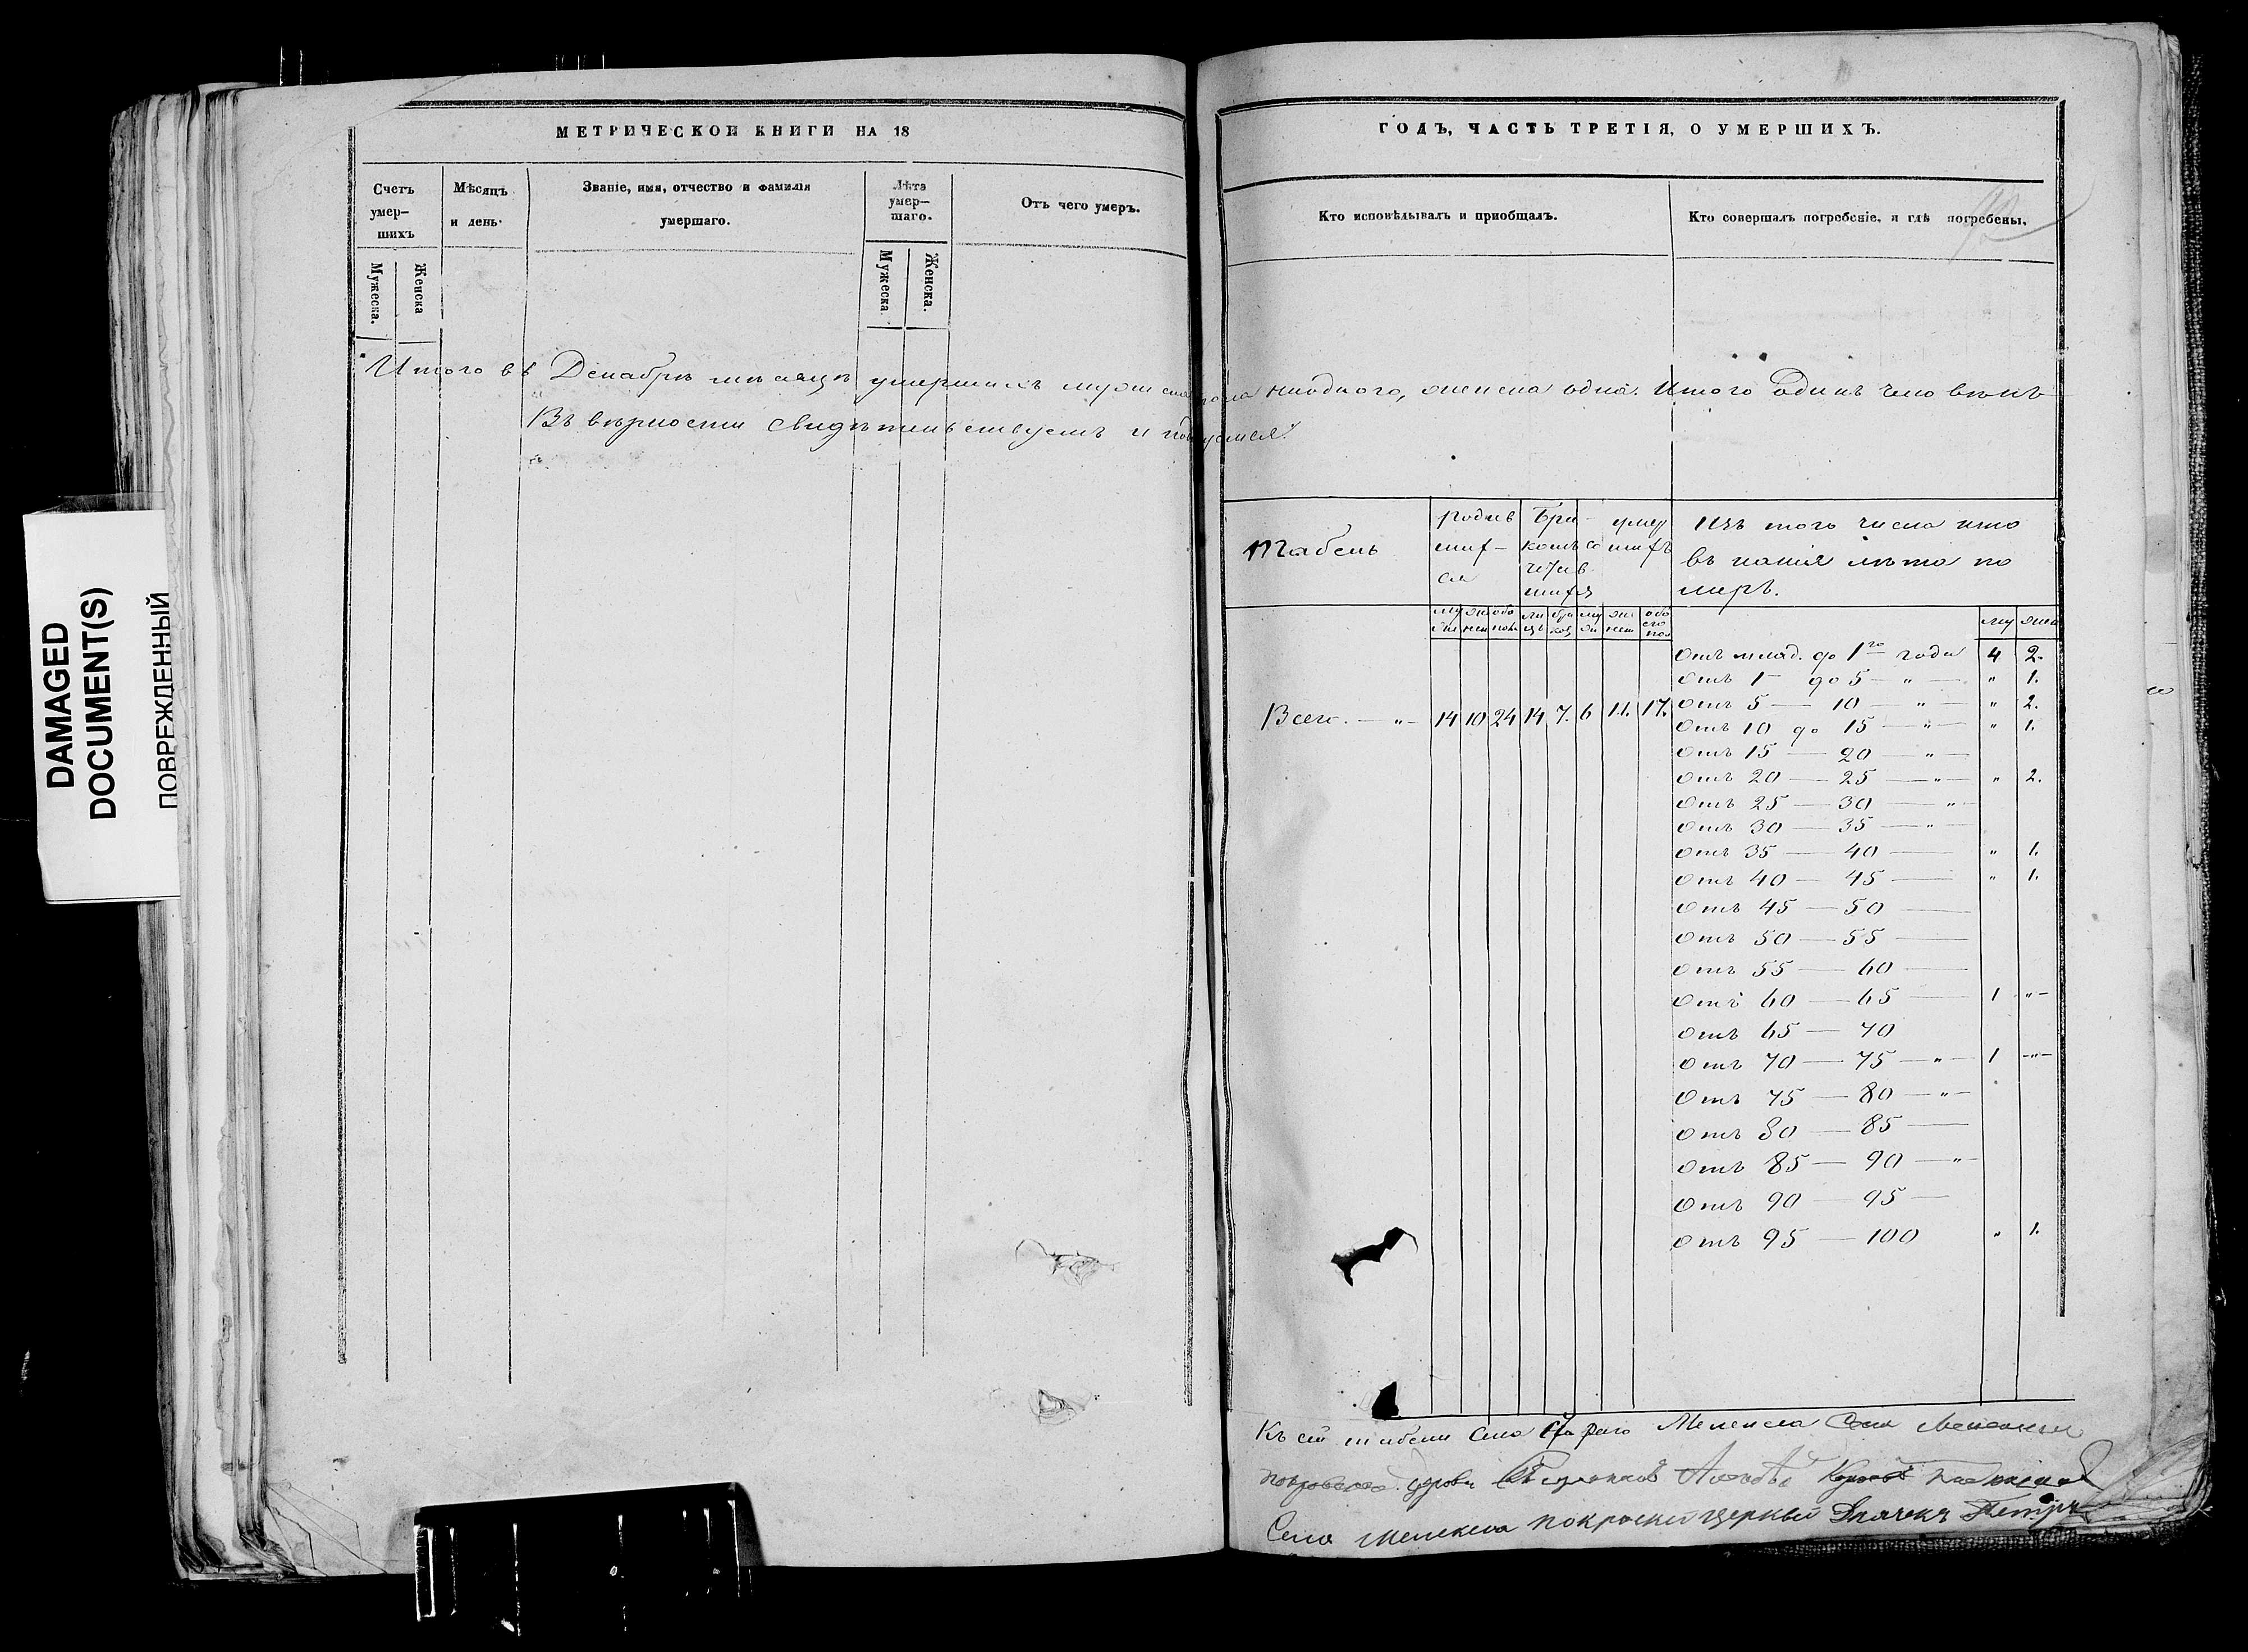 DAMAGED
DOCUMENT(S)
ПОВРЕЖДЕННЫЙ
МЕТРИЧЕСКОЙ КНИГИ НА 18
Счетъ умер-шихъ
Мѣсяцъ и день.
Званіе, имя, отчество и фамилія умершаго.
Лѣта умер-шаго.
Отъ чего умеръ.
Мужеска.
Женска
Мужеска
Женска.
ГОДЪ, ЧАСТЬ ТРЕТІЯ, О УМЕРШИХЪ.
Кто исповѣдывалъ и приобщалъ.
Кто совершалъ погребеніе, и гдѣ погребены.
Итого въ Декабрѣ мѣсяцѣ умершихъ мужеска пола ниодного, женска одна. Итого одинъ человѣкъ
Въ вѣрности свидѣтельствуемъ и
Табель
родив шихся
Бра-комъ со чтав шихся
умер шихъ
Изъ того числа кто
въ какія лѣта по
меръ.
му жен обо
му жен обо его пол
му жен
Отъ млад. до 1го года 4 2.
Отъ 1 до 5 — " — " 1.
Всего. — " — 14 10 24 14 7. 6 11. 17.
Отъ 5 — 10 — " — " 2.
Отъ 10 до 15 — " — " 1.
Отъ 15 — 20 — " —
Отъ 20 — 25 — " — " 2.
Отъ 25 — 30 — " —
Отъ 30 — 35 — " —
Отъ 35 — 40 — " 1.
Отъ 40 — 45 — " 1.
Отъ 45 — 50 —
Отъ 50 — 55 —
Отъ 55 — 60 —
Отъ 60 — 65 — 1 " —
Отъ 65 — 70
Отъ 70 — 75 — " — 1 — " —
Отъ 75 — 80 — " —
Отъ 80 — 85 —
Отъ 85 — 90 — " —
Отъ 90 — 95 —
Отъ 95 — 100 " 1.
Къ сей табели Села
церкви
Села Мелекеса покрвской церкви Дьячекъ Петръ